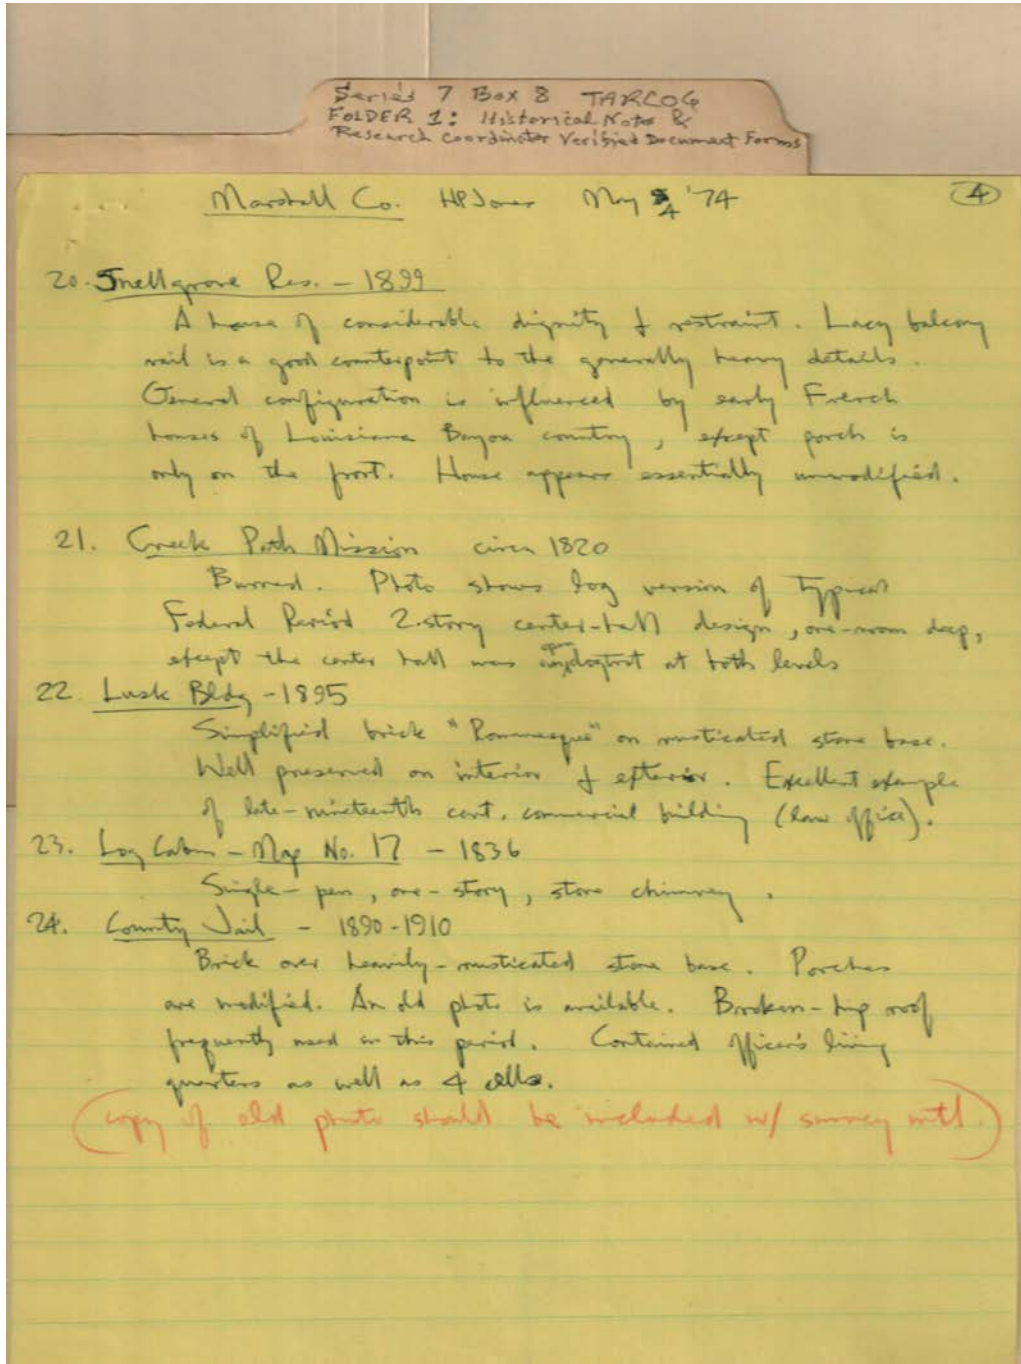 Series 7 Box 8 TARCOG
FOLDER 1: Historical Note &
Research Coordinator Verified Document Forms
Marshall Co. HPJones May 4 '74
4
20. Snellgrove Res. - 1899
A house of considerable dignity & restraint. Lacy balcony
rail is a good counterpoint to the generally heavy details.
General configuration is influenced by early French
houses of Louisiana Bayou country, except porch is
only on the front. House appears essentially unmodified.
21. Creek Path Mission circa 1820
Burned. Photo shows log version of typical
Federal Period 2-story center-hall design, one-room deep,
except the center hall was open at both levels
22 Lusk Bldg - 1895
Simplified brick "Romanesque" on rusticated stone base.
Well preserved on interior & exterior. Excellent example
of late-nineteenth cent. commercial building (law office).
23. Log Cabin - Map No. 17 - 1836
Single-pen, one-story, stone chimney.
24. County Jail - 1890-1910
Brick over heavily-rusticated stone base. Porches
are modified. An old photo is available. Broken-hip roof
frequently used in this period. Contained officer's living
quarters as well as 4 cells.
(copy of old photo should be included w/ survey mtl.)